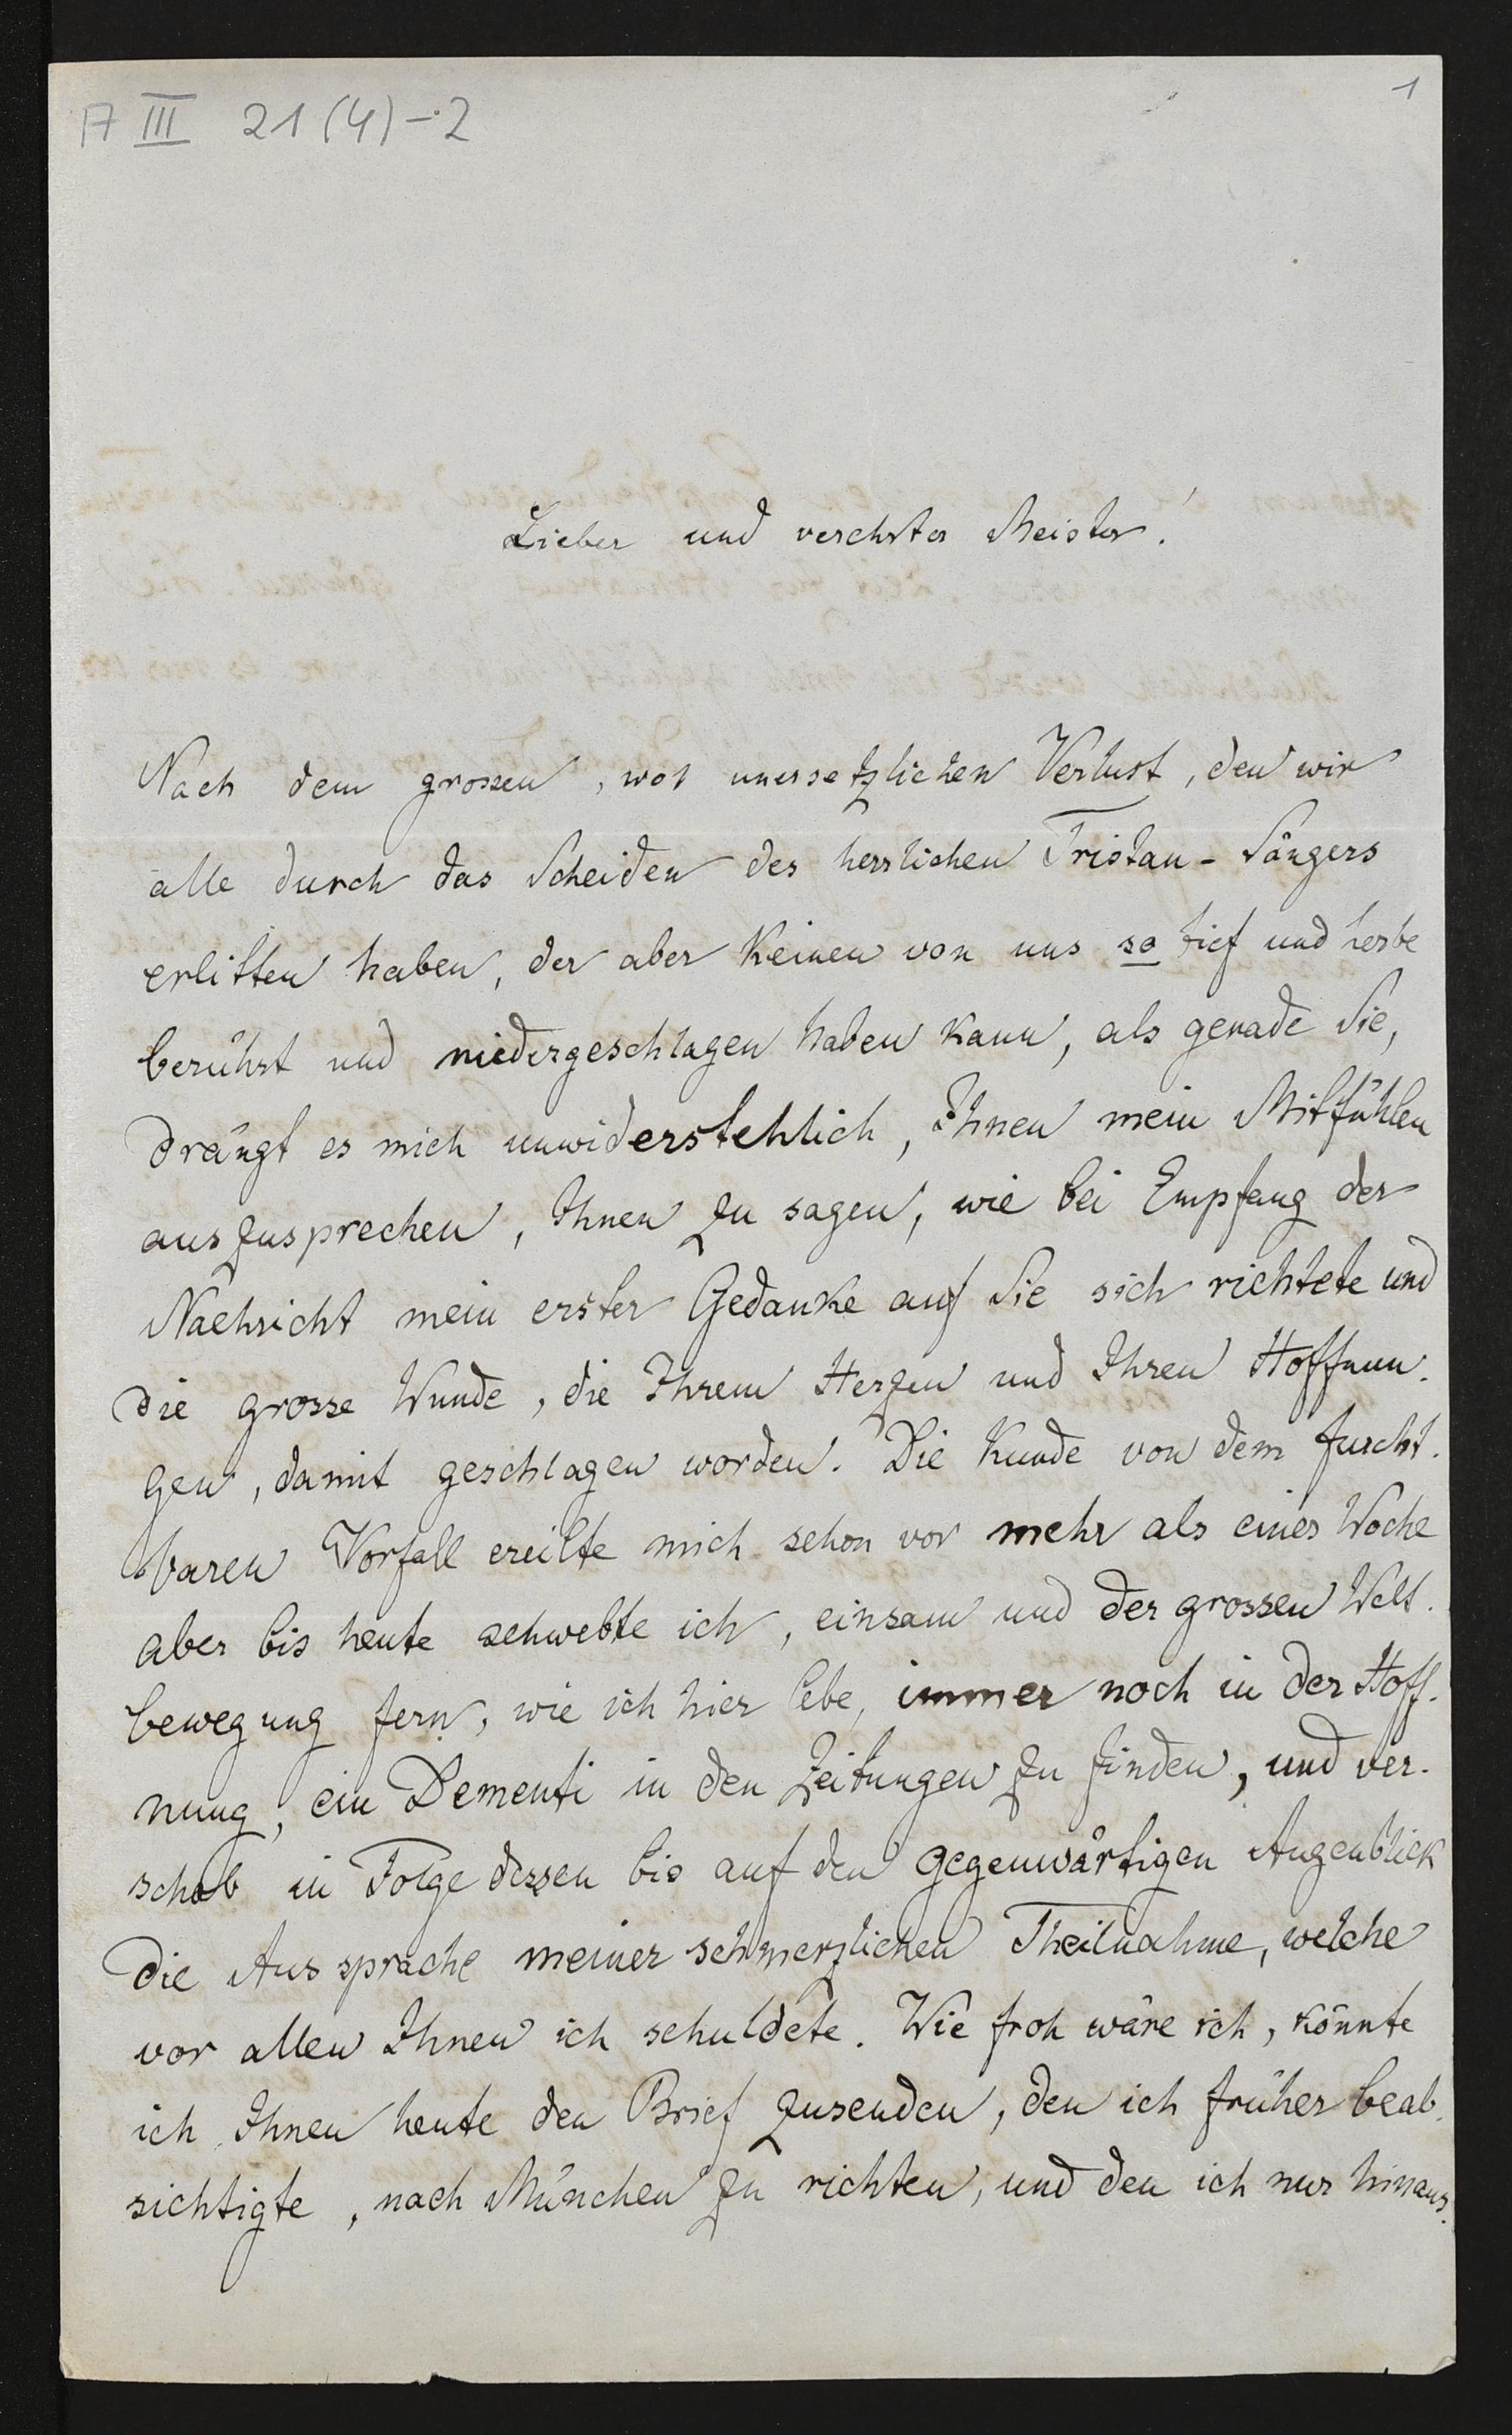 A III 21(4)-2
1
Lieber und verehrter Meister!
Nach dem grossen, wol unersetzlichen Verlust, den wir
alle durch das Scheiden des herrlichen Tristan-Sängers
erlitten haben, der aber Keinen von uns so tief und herbe
berührt und niedergeschlagen haben kann, als gerade Sie,
drängt es mich unwiderstehlich, Ihnen mein Mitfühlen
auszusprechen, Ihnen zu sagen, wie bei Empfang der
Nachricht mein erster Gedanke auf Sie sich richtete und
die grosse Wunde, die Ihrem Herzen und Ihren Hoffnun-
gen, damit geschlagen worden. Die Kunde von dem furcht-
baren Vorfall ereilte mich schon vor mehr als einer Woche
aber bis heute schwebte ich, einsam und der grossen Welt-
bewegung fern, wie ich hier lebe, immer noch in der Hoff-
nung, ein Dementi in den Zeitungen zu finden, und ver-
schob in Folge dessen bis auf den gegenwärtigen Augenblick
die Aussprache meiner schmerzlichen Theilnahme, welche
vor allen Ihnen ich schuldete. Wie froh wäre ich, könnte
ich Ihnen heute den Brief zusenden, den ich früher beab-
sichtigte, nach München zu richten, und den ich nur hinaus-